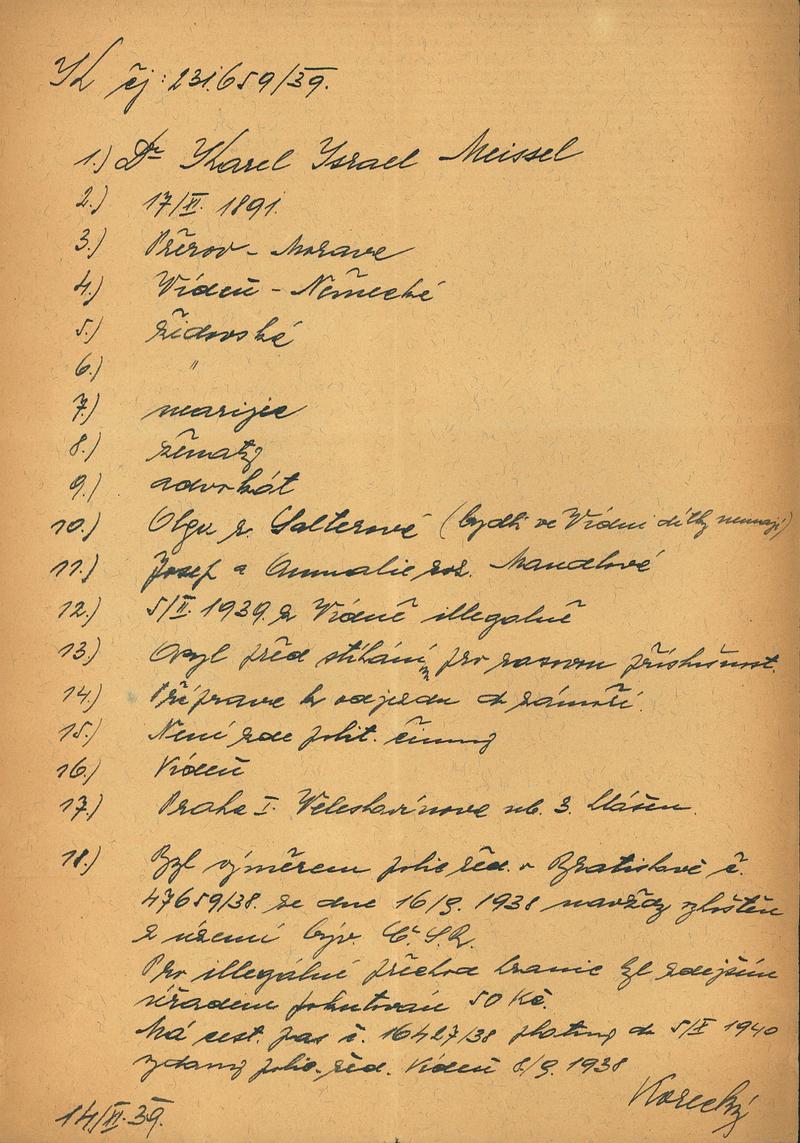 čj: 231.659/39.
1.) Dr Karel Israel Meissel
2.) 17/XI. 1891.
3.) Přerov - Morava
4.) Vídeň - Německé
5.) židovské
6.) "
7.) neárijec
8.) ženatý
9.) advokát
10.) Olga r. Salterové (bydlí ve Vídni dítky nemají)
11.) Josef a Ammalie roz. Mandlové
12.) 5/II. 1939. z Vídně illegalně
13.) před stíhání pro rasovou příslušnost.
14.) Příprava k odjezdu do zámoří.
15.) Není zde polit. činný
16.) Vídeň
17.) Praha I. Veleslavínova ul. 3. hlášen.
18.) Byl výměrem polic. řed. v Bratislavě č.
47659/38. ze dne 16/9. 1938 navždy vyhoštěn
z území býv. Č.S.R.
Pro illegální přechod hranic byl zdejším
úřadem pokutován 50 Kč.
Má cest. pas č. 16427/38 platný do 5/X 1940
vydaný polic. řed. Vídeň 8/9. 1938
Korecký
14/VI. 39.